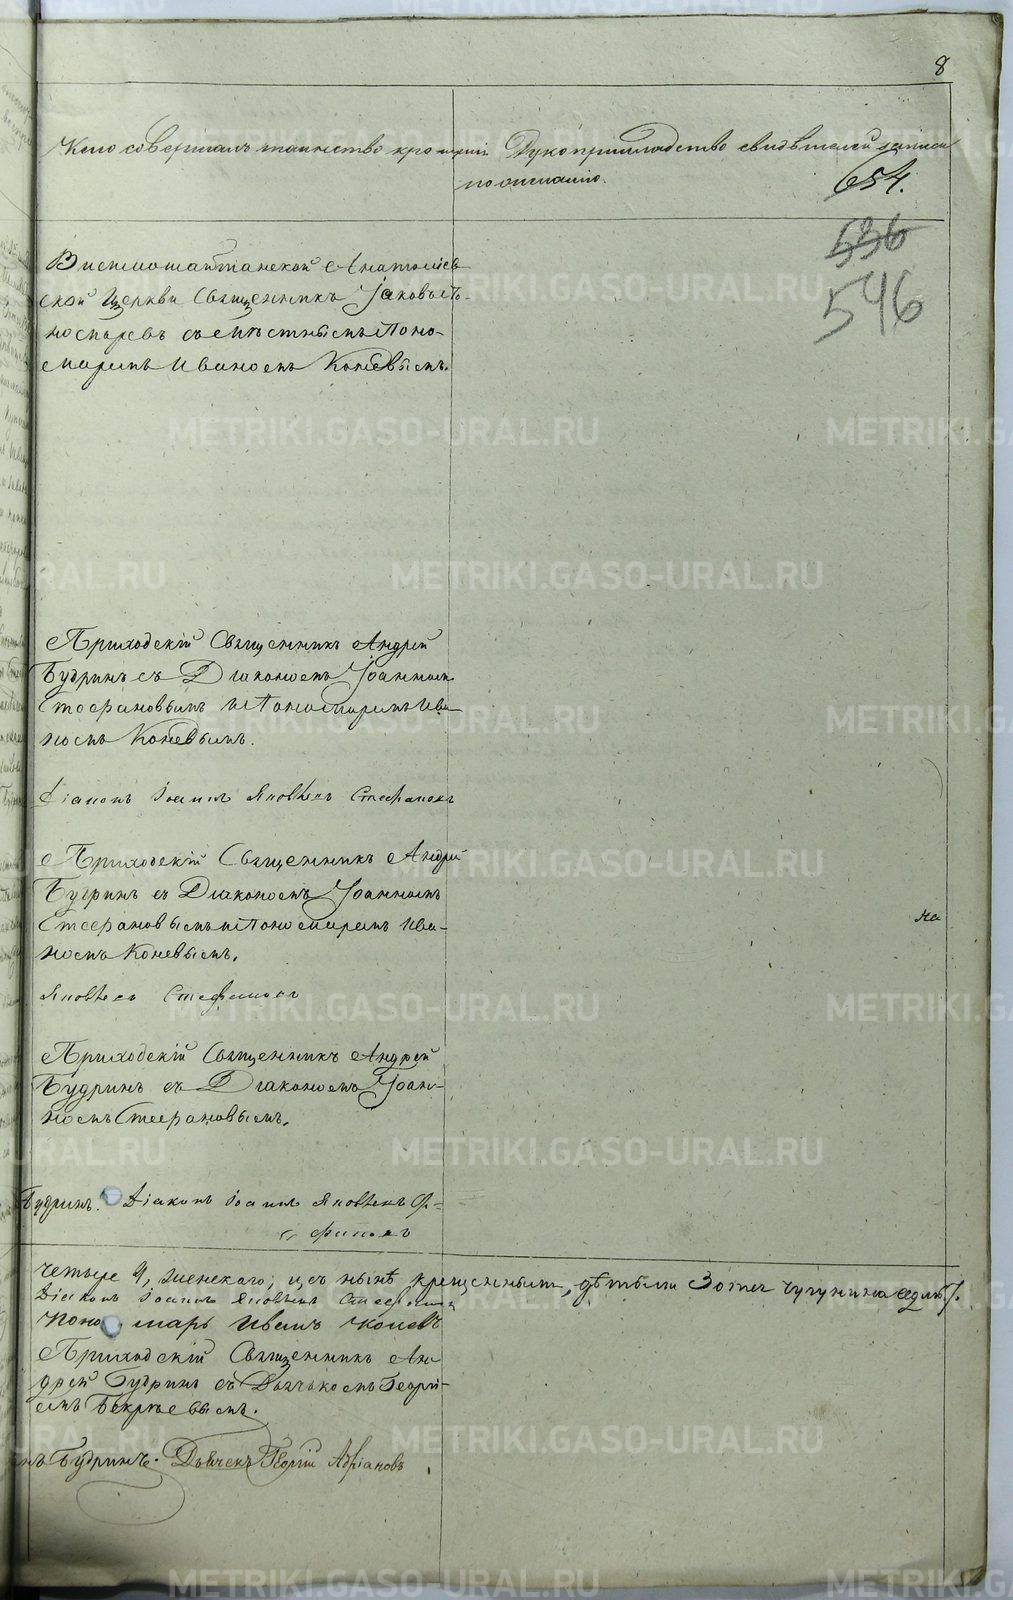 8
Кто совершалъ таинство крещенія Рукоприкладство свидѣтелей записи
по желанію.
654.
536
546
Висимошайтанской Анатоліев
ской Церкви Священникъ Іаковъ По-
носыревъ съ мѣстнымъ Поно-
маремъ Иваномъ Коневымъ.
Приходскій Священникъ Андрей
Будринъ съ Діакономъ Іоанномъ
Стефановымъ и Пономаремъ Ива-
номъ Коневымъ.
Діаконъ Іоаннъ Яковлевъ Стефановъ
Приходскій Священникъ Андрей
Будринъ съ Діакономъ Іоанномъ
Стефановымъ и Пономаремъ Ива-
номъ Коневымъ.
Яковлевъ Стефановъ
Приходскій Священникъ Андрей
Будринъ съ Діакономъ Іоан-
номъ Стефановымъ.
Будринъ. Діаконъ Іоаннъ Яковлевъ
четыре 4, женскаго; и съ нынѣ крещенными, дѣтьми
Діаконъ Іоаннъ Яковлевъ Стефановъ
Поно марь Иванъ Коневъ
Приходскій Священникъ Ан
дрей Будринъ съ Дьячкомъ Георгі-
емъ
Будринъ. Дьячекъ Георгій Адріановъ
METRIKI.GASO-URAL.RU